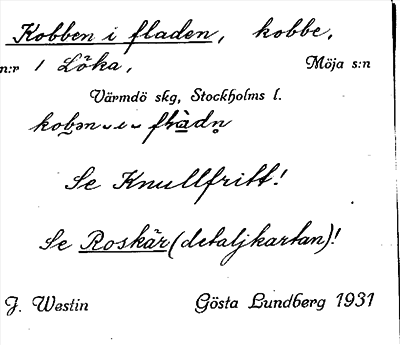 Kobben i fladen, kobbe,
n:r 1 Löka, Möja s:n
Värmdö skg, Stockholms l.
Se Knullfritt!
Se Roskär (detaljkartan)!
J. Westin Gösta Lundberg 1931